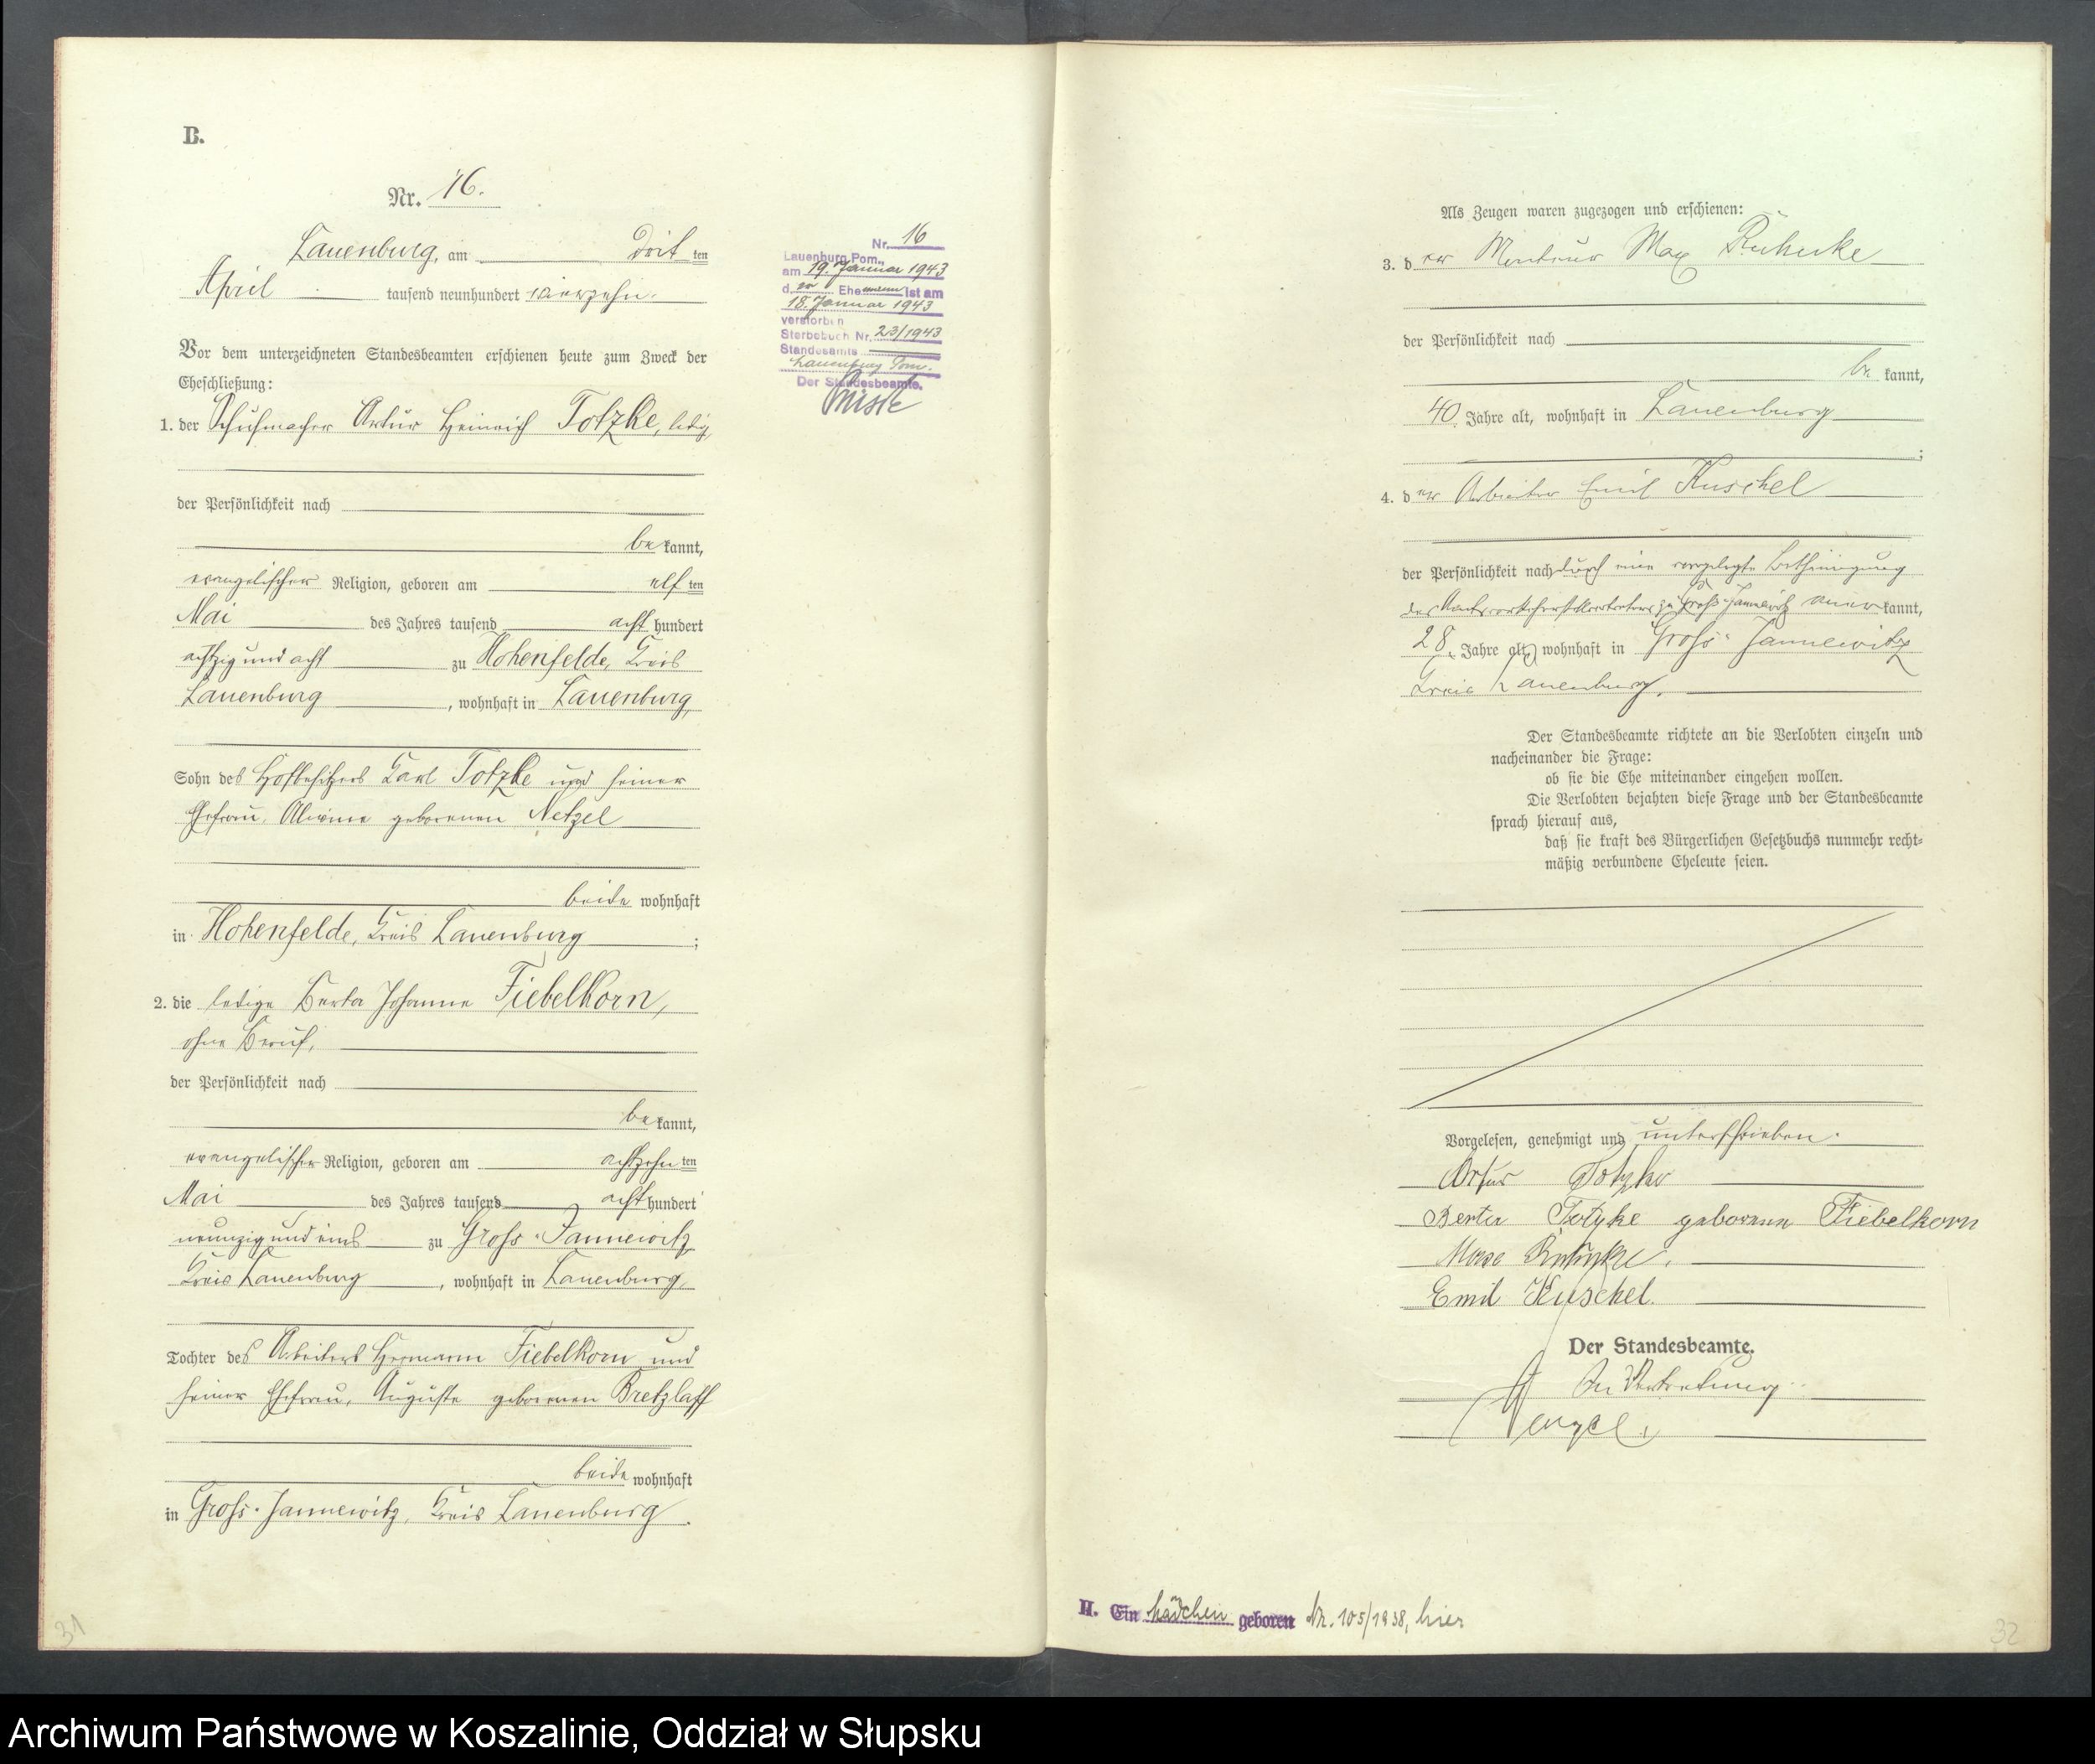 B.
Nr. 16.
Lauenburg, am dritten
April tausend neunhundert vierzehn.
Vor dem unterzeichneten Standesbeamten erschienen heute zum Zweck der
Eheschließung:
1. der Schuhmacher Artur Heinrich Totzke, ledig,
der Persönlichkeit nach
bekannt,
evangelischer Religion, geboren am elften
Mai des Jahres tausend acht hundert
achtzig und acht zu Hohenfelde, Kreis
Lauenburg, wohnhaft in Lauenburg,
Sohn des Hofbesitzers Carl Totzke und seiner
Ehefrau Alwine geborenen Netzel
beide wohnhaft
in Hohenfelde, Kreis Lauenburg;
2. die ledige Berta Johanne Fiebelkorn,
ohne Beruf,
der Persönlichkeit nach
bekannt,
evangelischer Religion, geboren am achtzehnten
Mai des Jahres tausend acht hundert
neunzig und eins zu Gross-Jannewitz
Kreis Lauenburg, wohnhaft in Lauenburg,
Tochter des Arbeiters Hermann Fiebelkorn und
seiner Ehefrau, Auguste geborenen Bretzlaff
beide wohnhaft
in Gross-Jannewitz, Kreis Lauenburg.
31
Nr. 16
Lauenburg Pom.,
am 19. Januar 1943
d.er Ehemann ist am
18. Januar 1943
verstorben
Sterbebuch Nr. 23/1943
Standesamts
Lauenburg Pom.
Der Standesbeamte.
Als Zeugen waren zugezogen und erschienen:
3. der Monteur Max
der Persönlichkeit nach
bekannt,
40 Jahre alt, wohnhaft in Lauenburg
;
4. der Arbeiter Emil Kuschel
der Persönlichkeit nach durch eine vorgelegte Bescheinigung
des Amtsvorsteherstellvertreters zu Gross-Jannewitz anerkannt,
28 Jahre alt, wohnhaft in Gross-Jannewitz
Kreis Lauenburg.
Der Standesbeamte richtete an die Verlobten einzeln und
nacheinander die Frage:
ob sie die Ehe miteinander eingehen wollen.
Die Verlobten bejahten diese Frage und der Standesbeamte
sprach hierauf aus,
daß sie kraft des Bürgerlichen Gesetzbuchs nunmehr recht-
mäßig verbundene Eheleute seien.
Vorgelesen, genehmigt und unterschrieben.
Artur Totzke
Berta Totzke geborene Fiebelkorn
Max
Emil Kuschel.
Der Standesbeamte.
In Vertretung.
II. Ein Mädchen geboren Nr. 105/1938, hier
32
Archiwum Państwowe w Koszalinie, Oddział w Słupsku